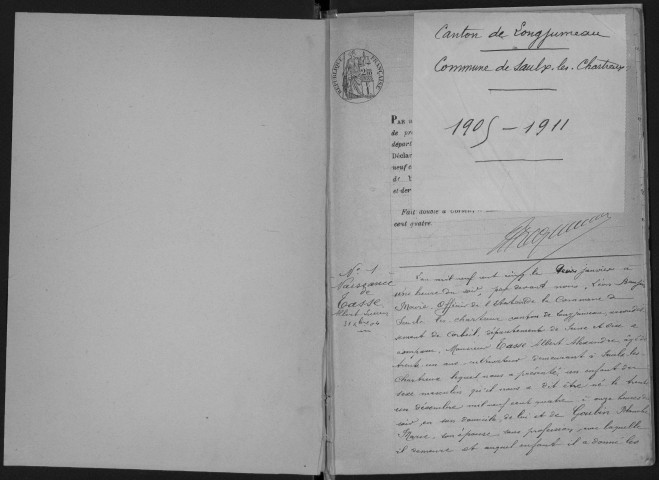 Canton de Longjumeau
Commune de Saulx-les-Chartreux
1905 - 1911
REPUBLIQUE FRANÇAISE
PAR
de pr
départ
Déclar
neuf c
de
et der
Fait double à Corbeil,
cent quatre.
N° 1
Naissance
de
Tasse
Albert Lucien
31 Xbre 04
L'an mil neuf cent cinq le deux janvier à
une heure du soir, par devant nous,
Maire, Officier de l'état civil de la Commune de
Saulx les Chartreux canton de Longjumeau, arrondis-
sement de Corbeil, département de Seine et Oise a
comparu, Monsieur Tasse Albert Alexandre âgé de
trente un ans, demeurant à Saulx les
Chartreux lequel nous a présenté un enfant du
sexe masculin, qu'il nous a dit être né le trente
un décembre mil neuf cent quatre à onze heures du
soir en son domicile, de lui et de Blanche
Marie, son épouse sans profession, avec laquelle
il demeure et auquel enfant il a donné les